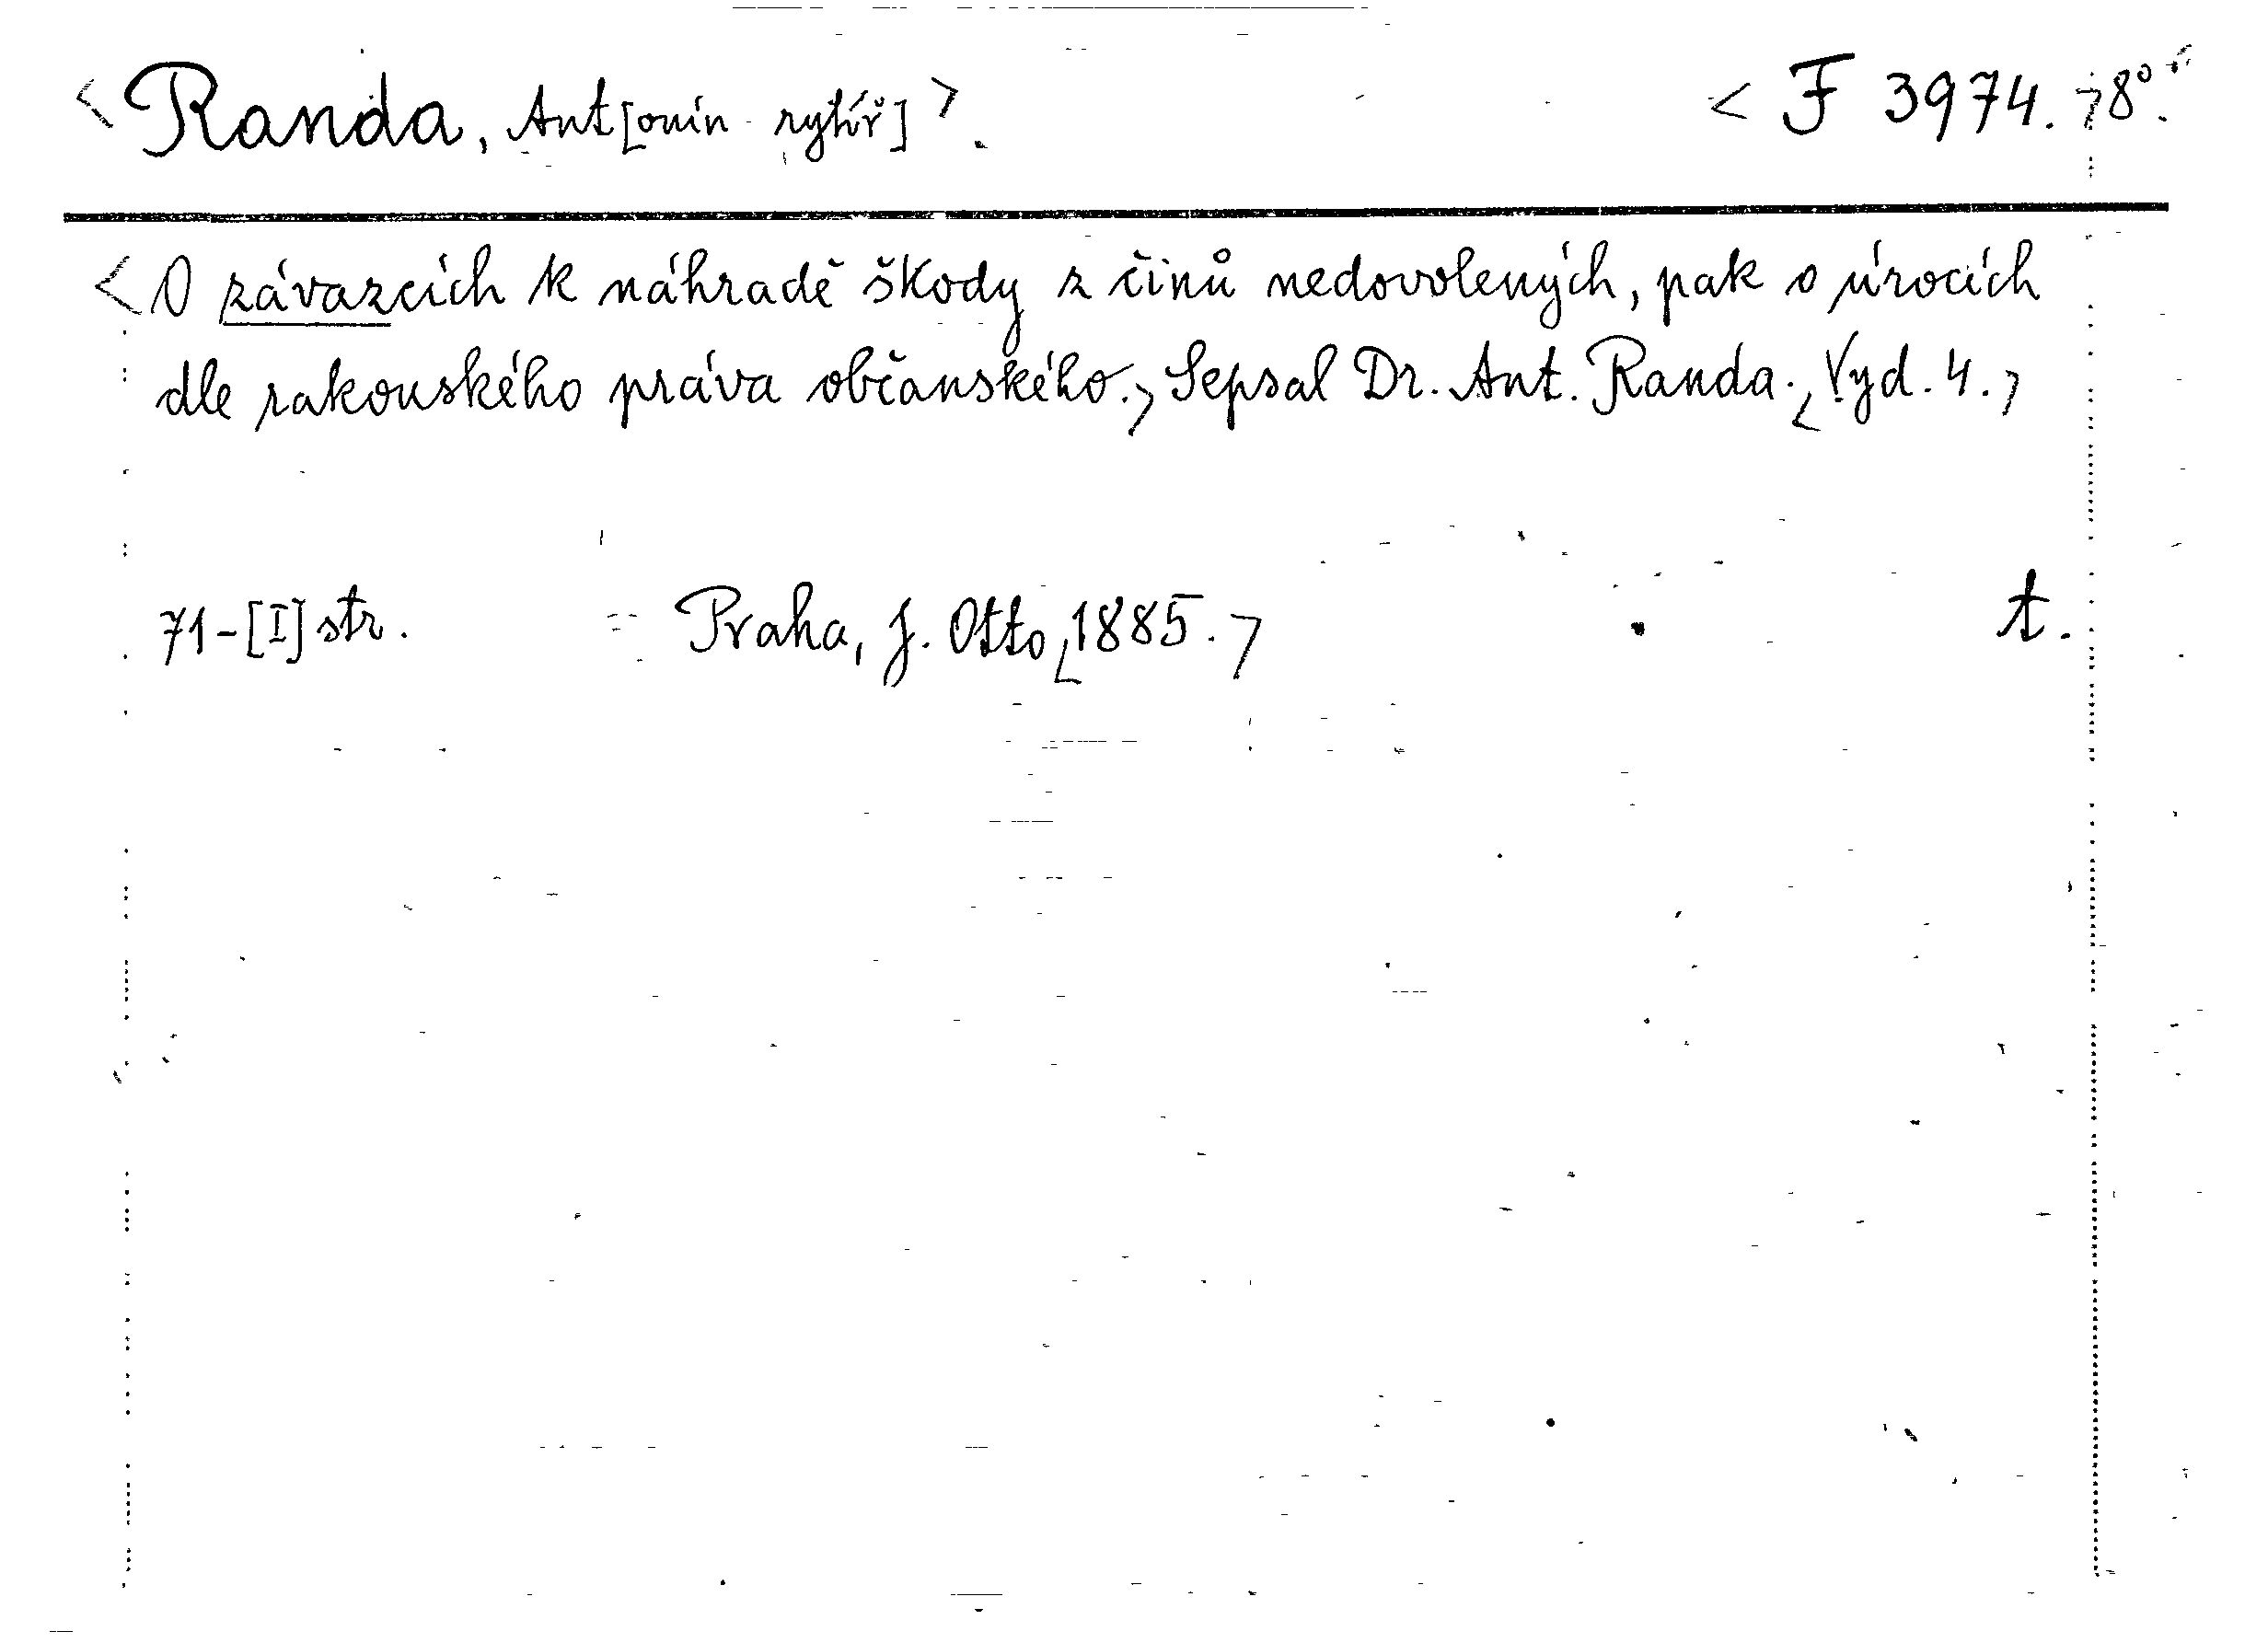 <Randa, Ant[onín rytíř]>. <F 3974.>8°.
<O závazcích k náhradě škody z činů nedovolených, pak o úrocích
dle rakouského práva občanského.> Sepsal Dr. Ant. Randa. <Vyd. 4.>
71-[I] str. Praha, J. Otto <1885.> t.